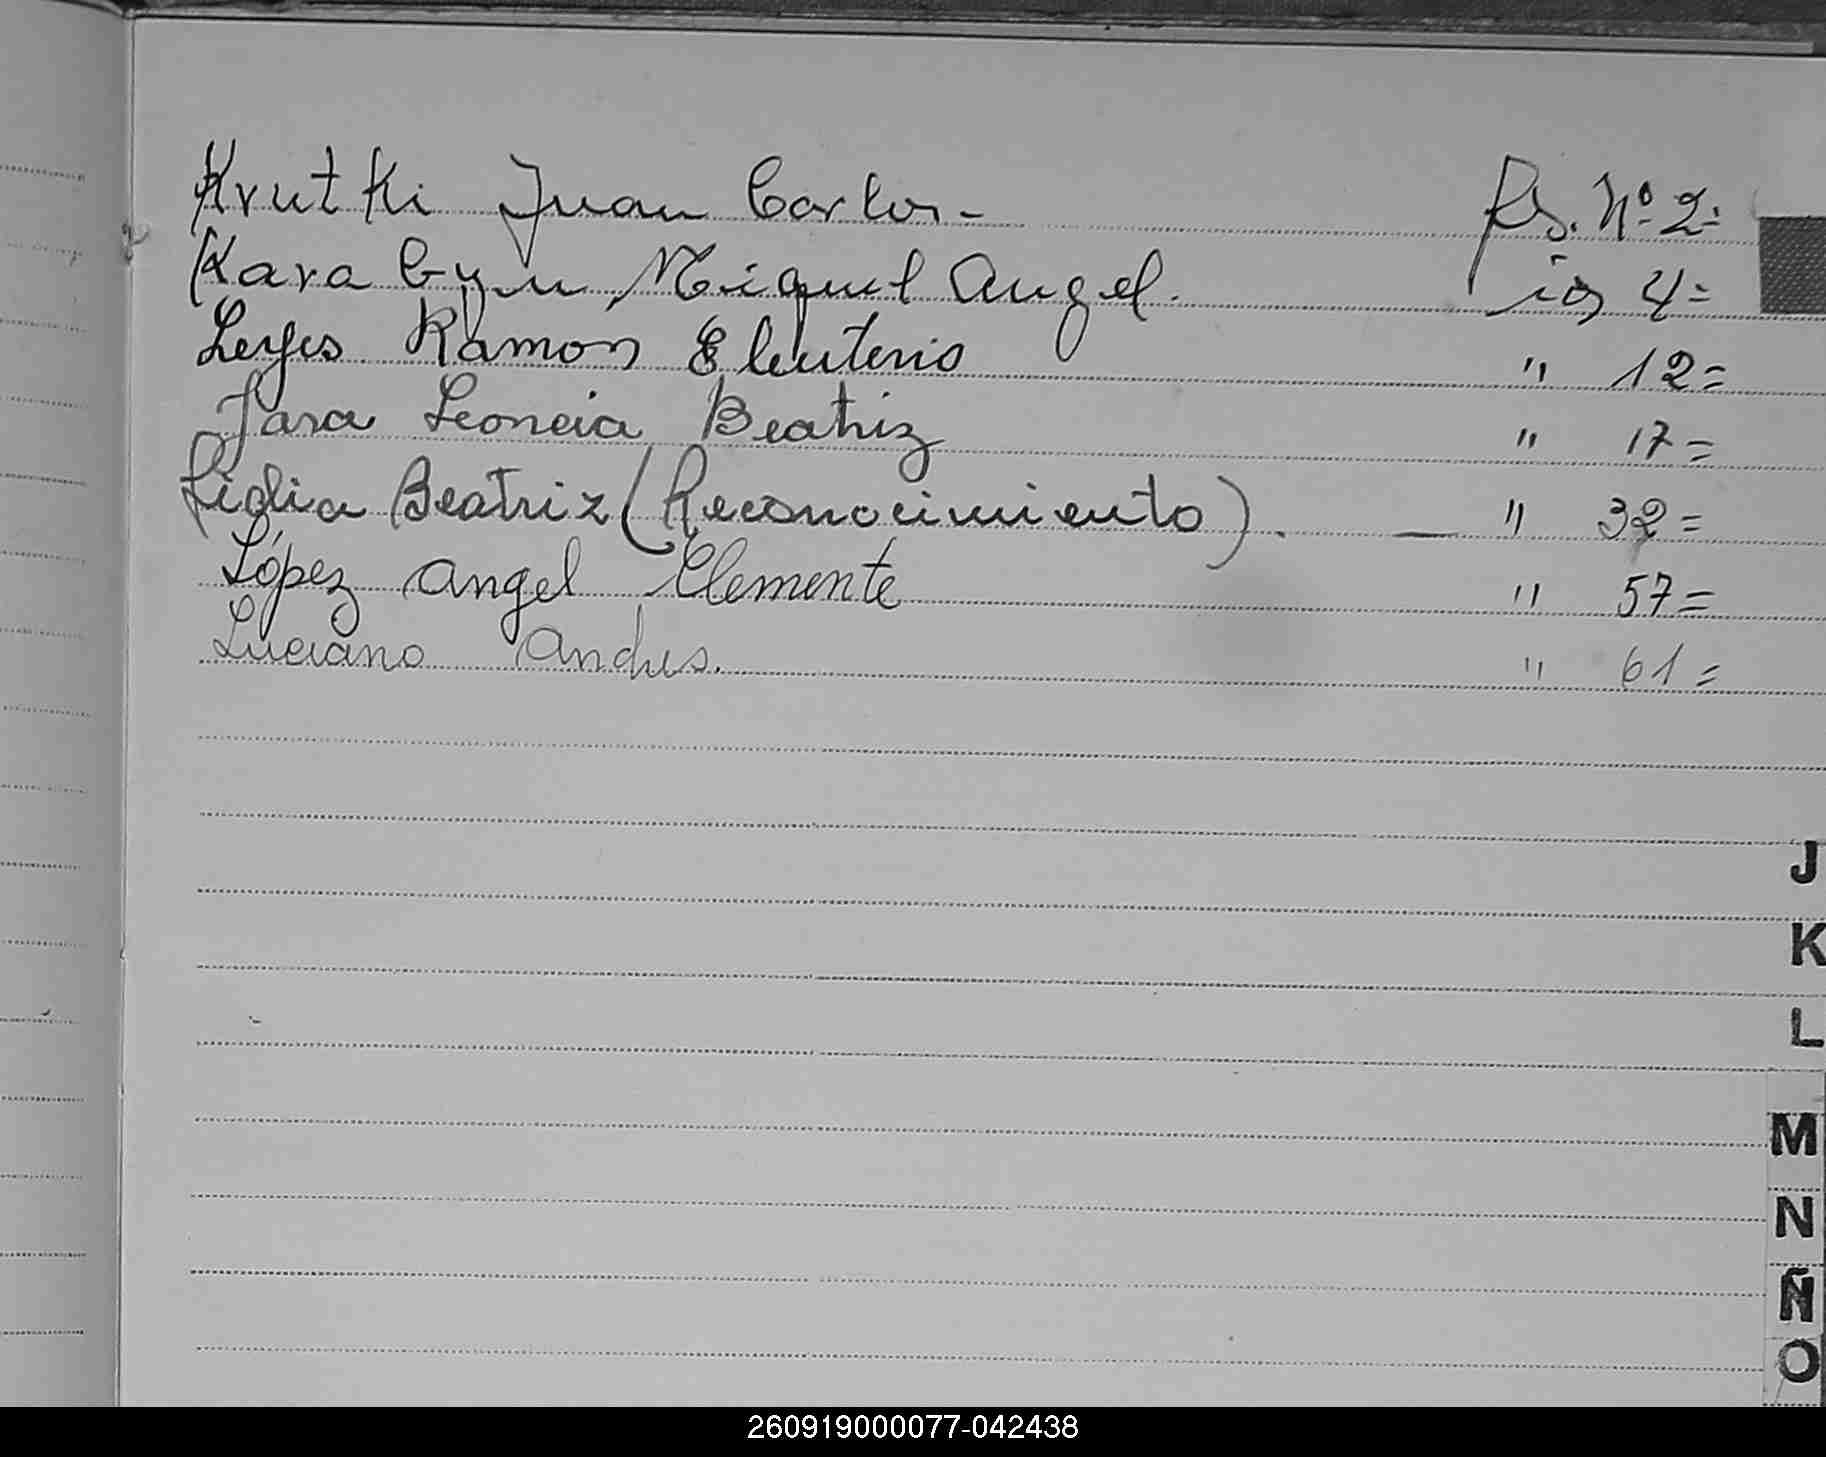 Krutki Juan Carlos.- fs. Nº 2=
Karabyn Miguel Angel. " 4=
Leyes Ramon Eleuterio " 12=
Jara Leoncia Beatriz " 17=
Lidia Beatriz (Reconocimiento). — " 32=
López Angel Clemente " 57=
Luciano Andres. " 61=
J
K
L
M
N
Ñ
O
260919000077-042438